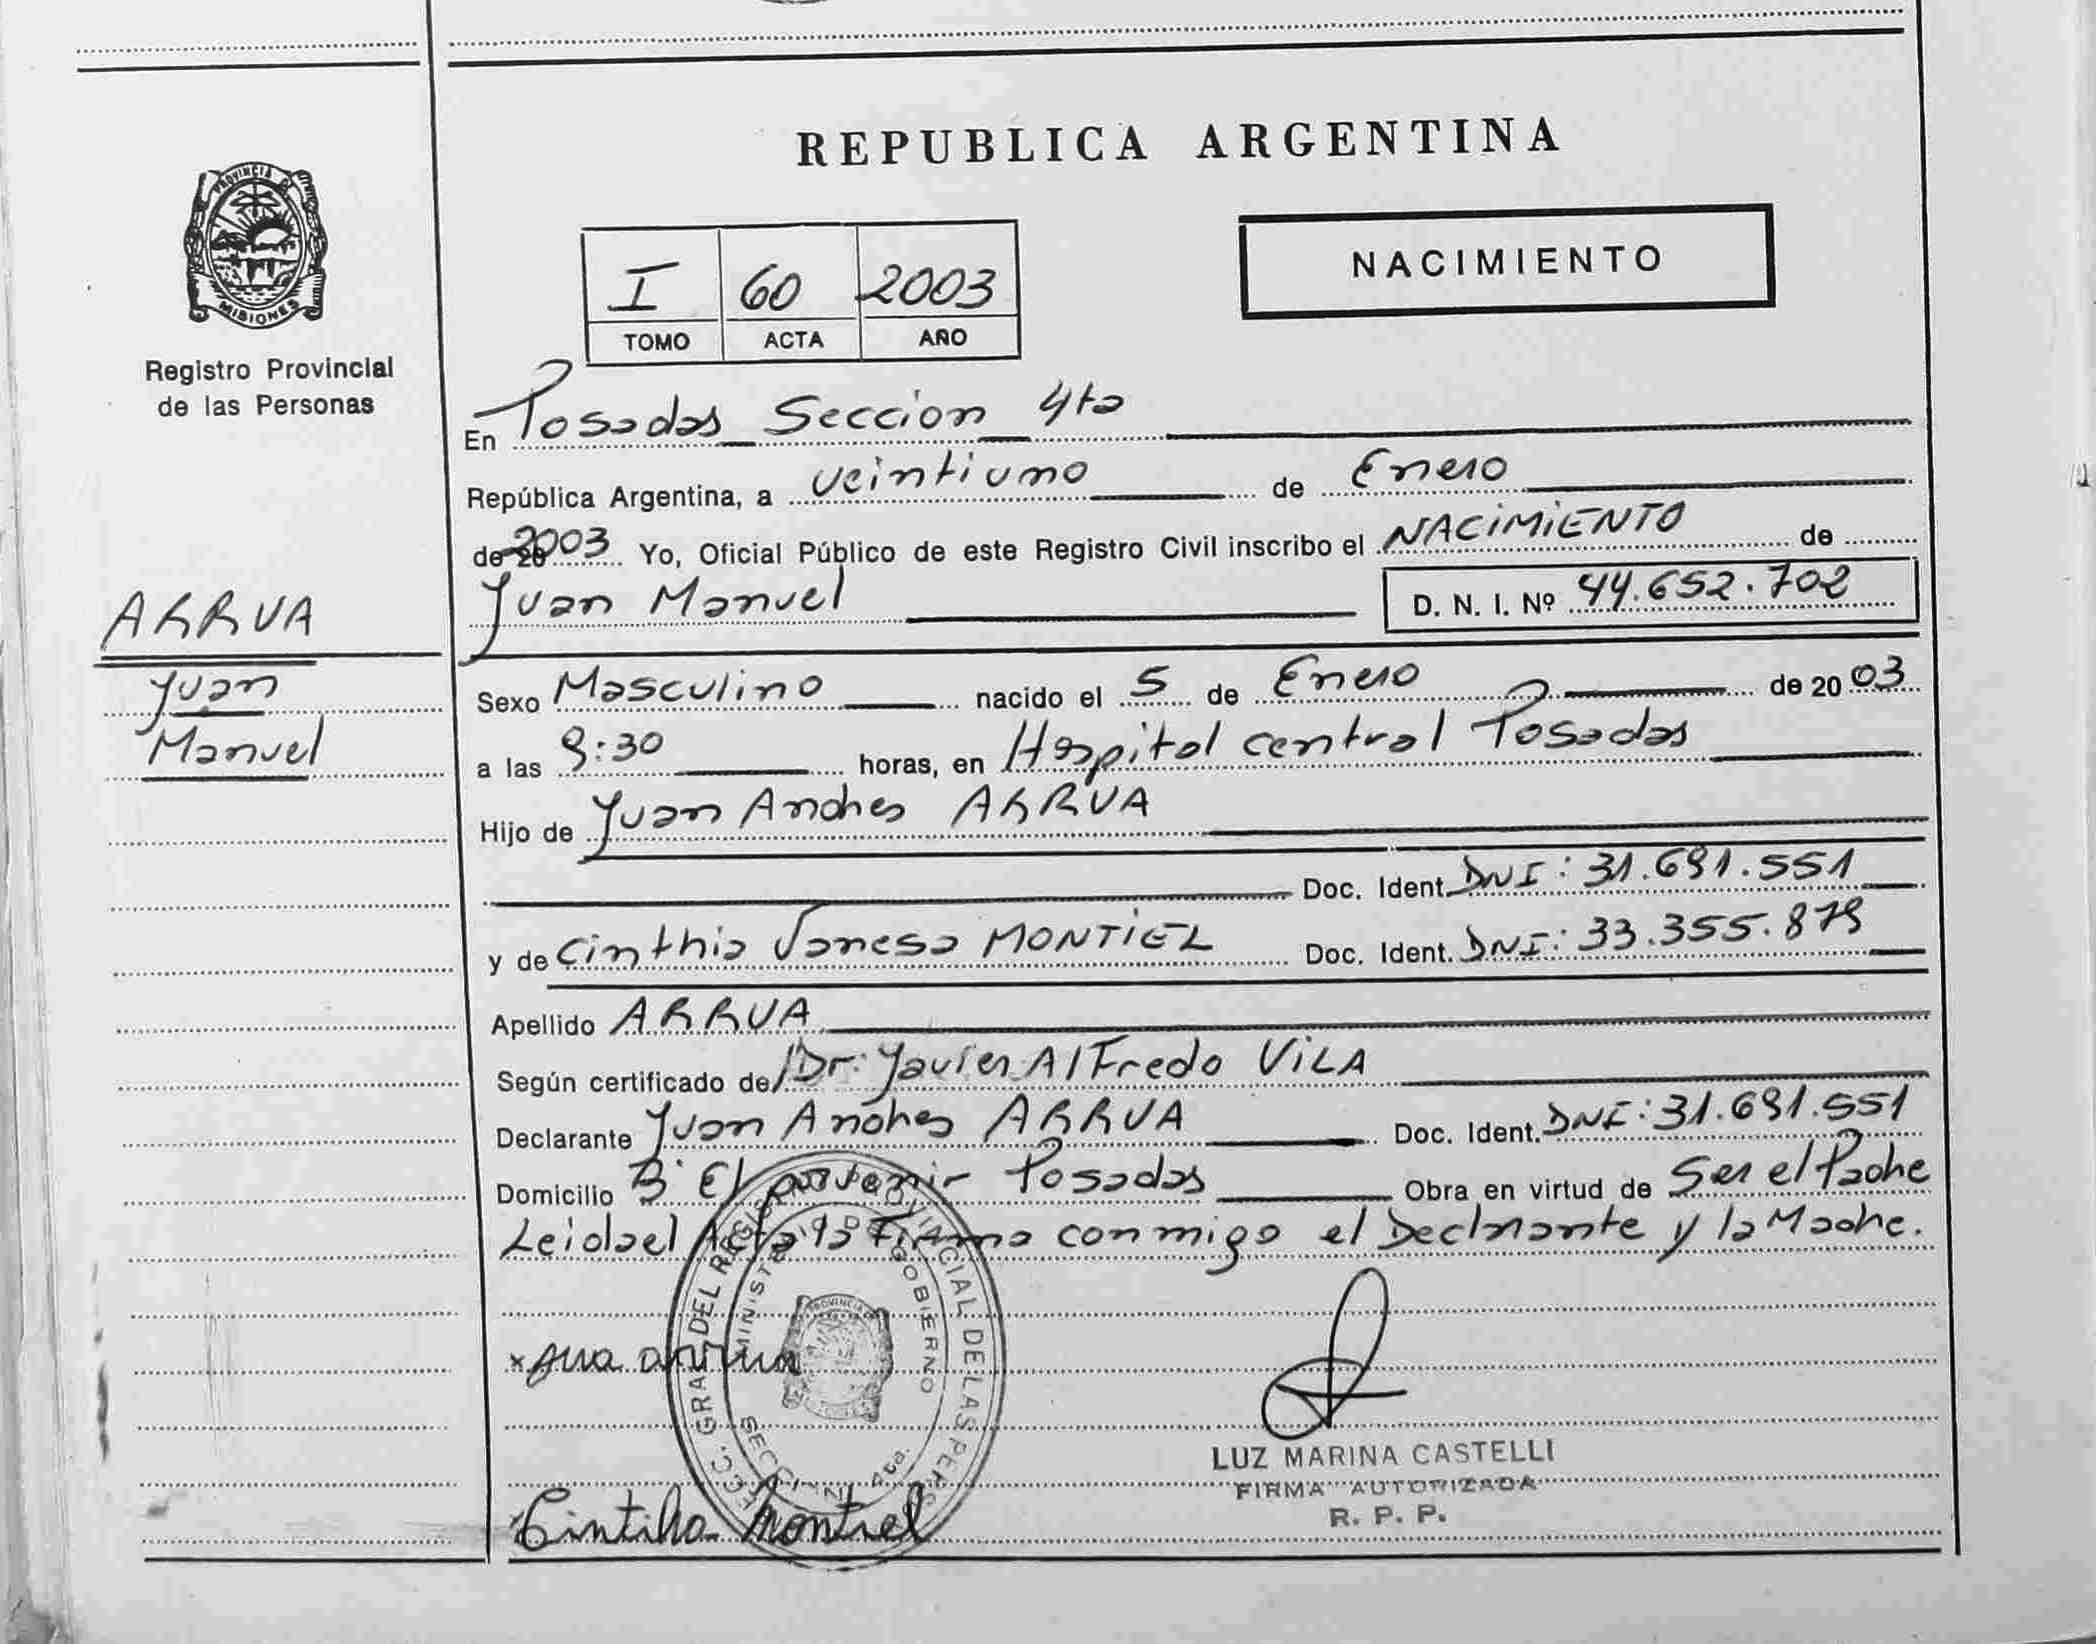 REPUBLICA ARGENTINA
PROVINCIA DE
MISIONES
Registro Provincial
de las Personas
NACIMIENTO
I 60 2003
TOMO ACTA AÑO
En Posadas Seccion 4ta
República Argentina, a veintiuno de Enero
de 20 2003 Yo, Oficial Público de este Registro Civil inscribo el NACIMIENTO de
Juan Manuel D. N. I. Nº 44.652.702
ARRUA
Juan
Manuel
Sexo Masculino nacido el 5 de Enero de 20 03
a las 9:30 horas, en Hospital central Posadas
Hijo de Juan Andres ARRUA
Doc. Ident. DNI: 31.691.551
y de Cinthia Vanesa MONTIEL Doc. Ident. DNI: 33.355.879
Apellido ARRUA
Según certificado de Dr. Javier Alfredo VILA
Declarante Juan Andres ARRUA Doc. Ident. DNI: 31.691.551
Domicilio Bº El porvenir Posadas Obra en virtud de Ser el Padre
Leida el Acta la Firma conmigo el Declarante y la Madre.
GRAL. DEL REGISTRO PROVINCIAL DE LAS PERS
MINISTERIO DE GOBIERNO
SECCION 4ta.
LUZ MARINA CASTELLI
FIRMA AUTORIZADA
R. P. P.
Cintiha Montiel